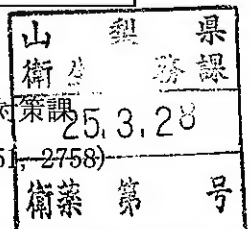 山梨県
衛生 務課
対策課
25.3.28
51, 2758)
衛薬第 号